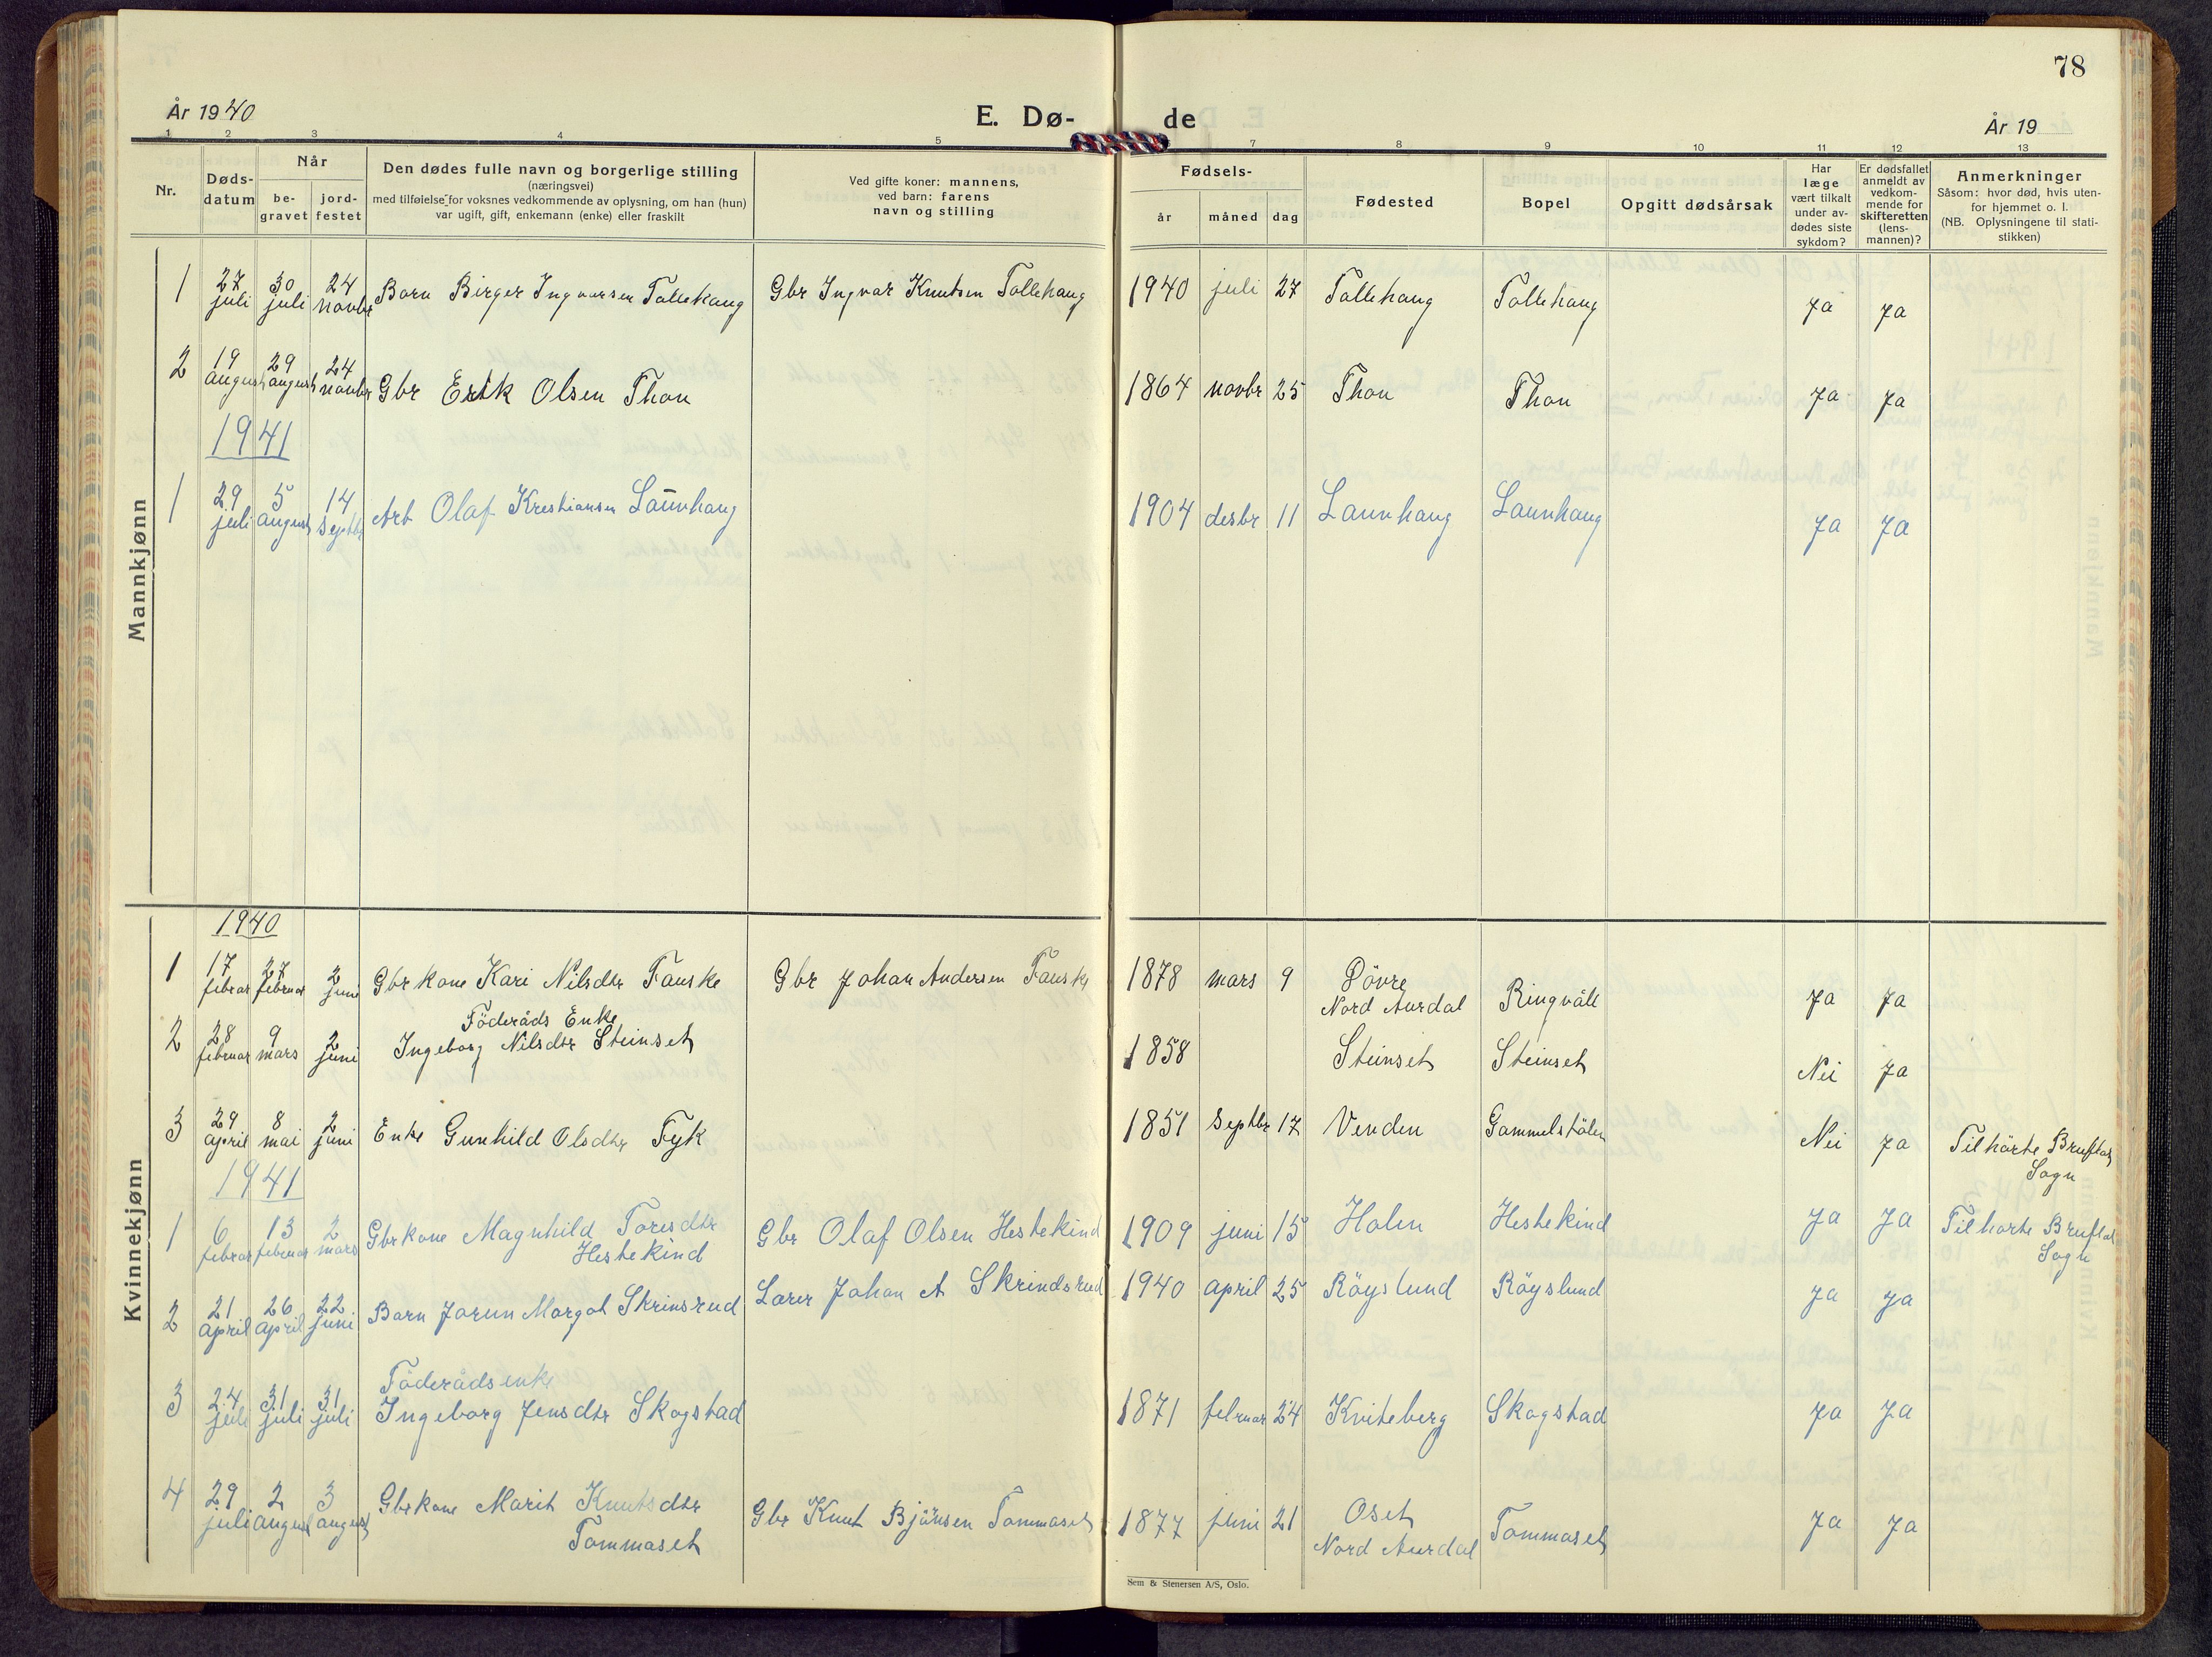 78
År 1940
E. Dø-
de
År 19
1 2 3 4 5 7 8 9 10 11 12 13
Nr.
Døds-
datum
Når
be-
gravet
jord-
festet
Den dødes fulle navn og borgerlige stilling
(næringsvei)
med tilføielse for voksnes vedkommende av oplysning, om han (hun)
var ugift, gift, enkemann (enke) eller fraskilt
Ved gifte koner: mannens,
ved barn: farens
navn og stilling
Fødsels-
år måned dag
Fødested
Bopel
Opgitt dødsårsak
Har
læge
vært tilkalt
under av-
dødes siste
sykdom?
Er dødsfallet
anmeldt av
vedkom-
mende for
skifteretten
(lens-
mannen)?
Anmerkninger
Såsom: hvor død, hvis uten-
for hjemmet o. l.
(NB. Oplysningene til stati-
stikken)
Mannkjønn
1 27 juli 30 juli 24 novbr Barn Birger Ingvarsen Tollehaug Gbr Ingvar Knutsen Tollehaug 1940 juli 27 Tollehaug Tollehaug Ja Ja
2 19 august 29 august 24 novbr Gbr Erik Olsen Thon 1864 novbr 25 Thon Thon Ja Ja
1941
1 29 juli 5 august 14 septbr Arb Olaf Krestiansen Launhaug 1904 desbr 11 Launhaug Launhaug Ja Ja
Kvinnekjønn
1940
1 17 febrar 27 februar 2 juni Gbrkone Kari Nilsdtr Fauske Gbr Johan Andersen Fauske 1878 mars 9 Dövre
Nord Aurdal Ringvåll Ja Ja
Föderåds Enke
2 28 februar 9 mars 2 juni Ingeborg Nilsdtr Steinset 1858 Steinset Steinset Nei Ja
3 29 april 8 mai 2 juni Enke Gunhild Olsdtr Fyk 1851 Septbr 17 Venden Gammelstölen Nei Ja Tilhörte Bruflat
Sogn
1941
1 6 febrar 13 februar 2 mars Gbrkone Magnhild Toresdtr
Hestekind Gbr Olaf Olsen Hestekind 1909 juni 15 Holen Hestekind Ja Ja Tilhörte Bruflat
Sogn
2 21 April 26 April 22 juni Barn Jorun Margot Skrinsrud Lærer Johan A Skrindsrud 1940 April 25 Röyslund Röyslund Ja Ja
Föderådsenke
3 24 juli 31 juli 31 juli Ingeborg Jensdtr Skogstad 1871 februar 24 Kviteberg Skogstad Ja Ja
4 29 juli 2 august 3 august Gbrkone Marit Knutsdtr
Tommaset Gbr Knut Björnsen Tommaset 1877 juni 21 Oset
Nord Aurdal Tommaset Ja Ja
Sem & Stenersen A/S, Oslo.